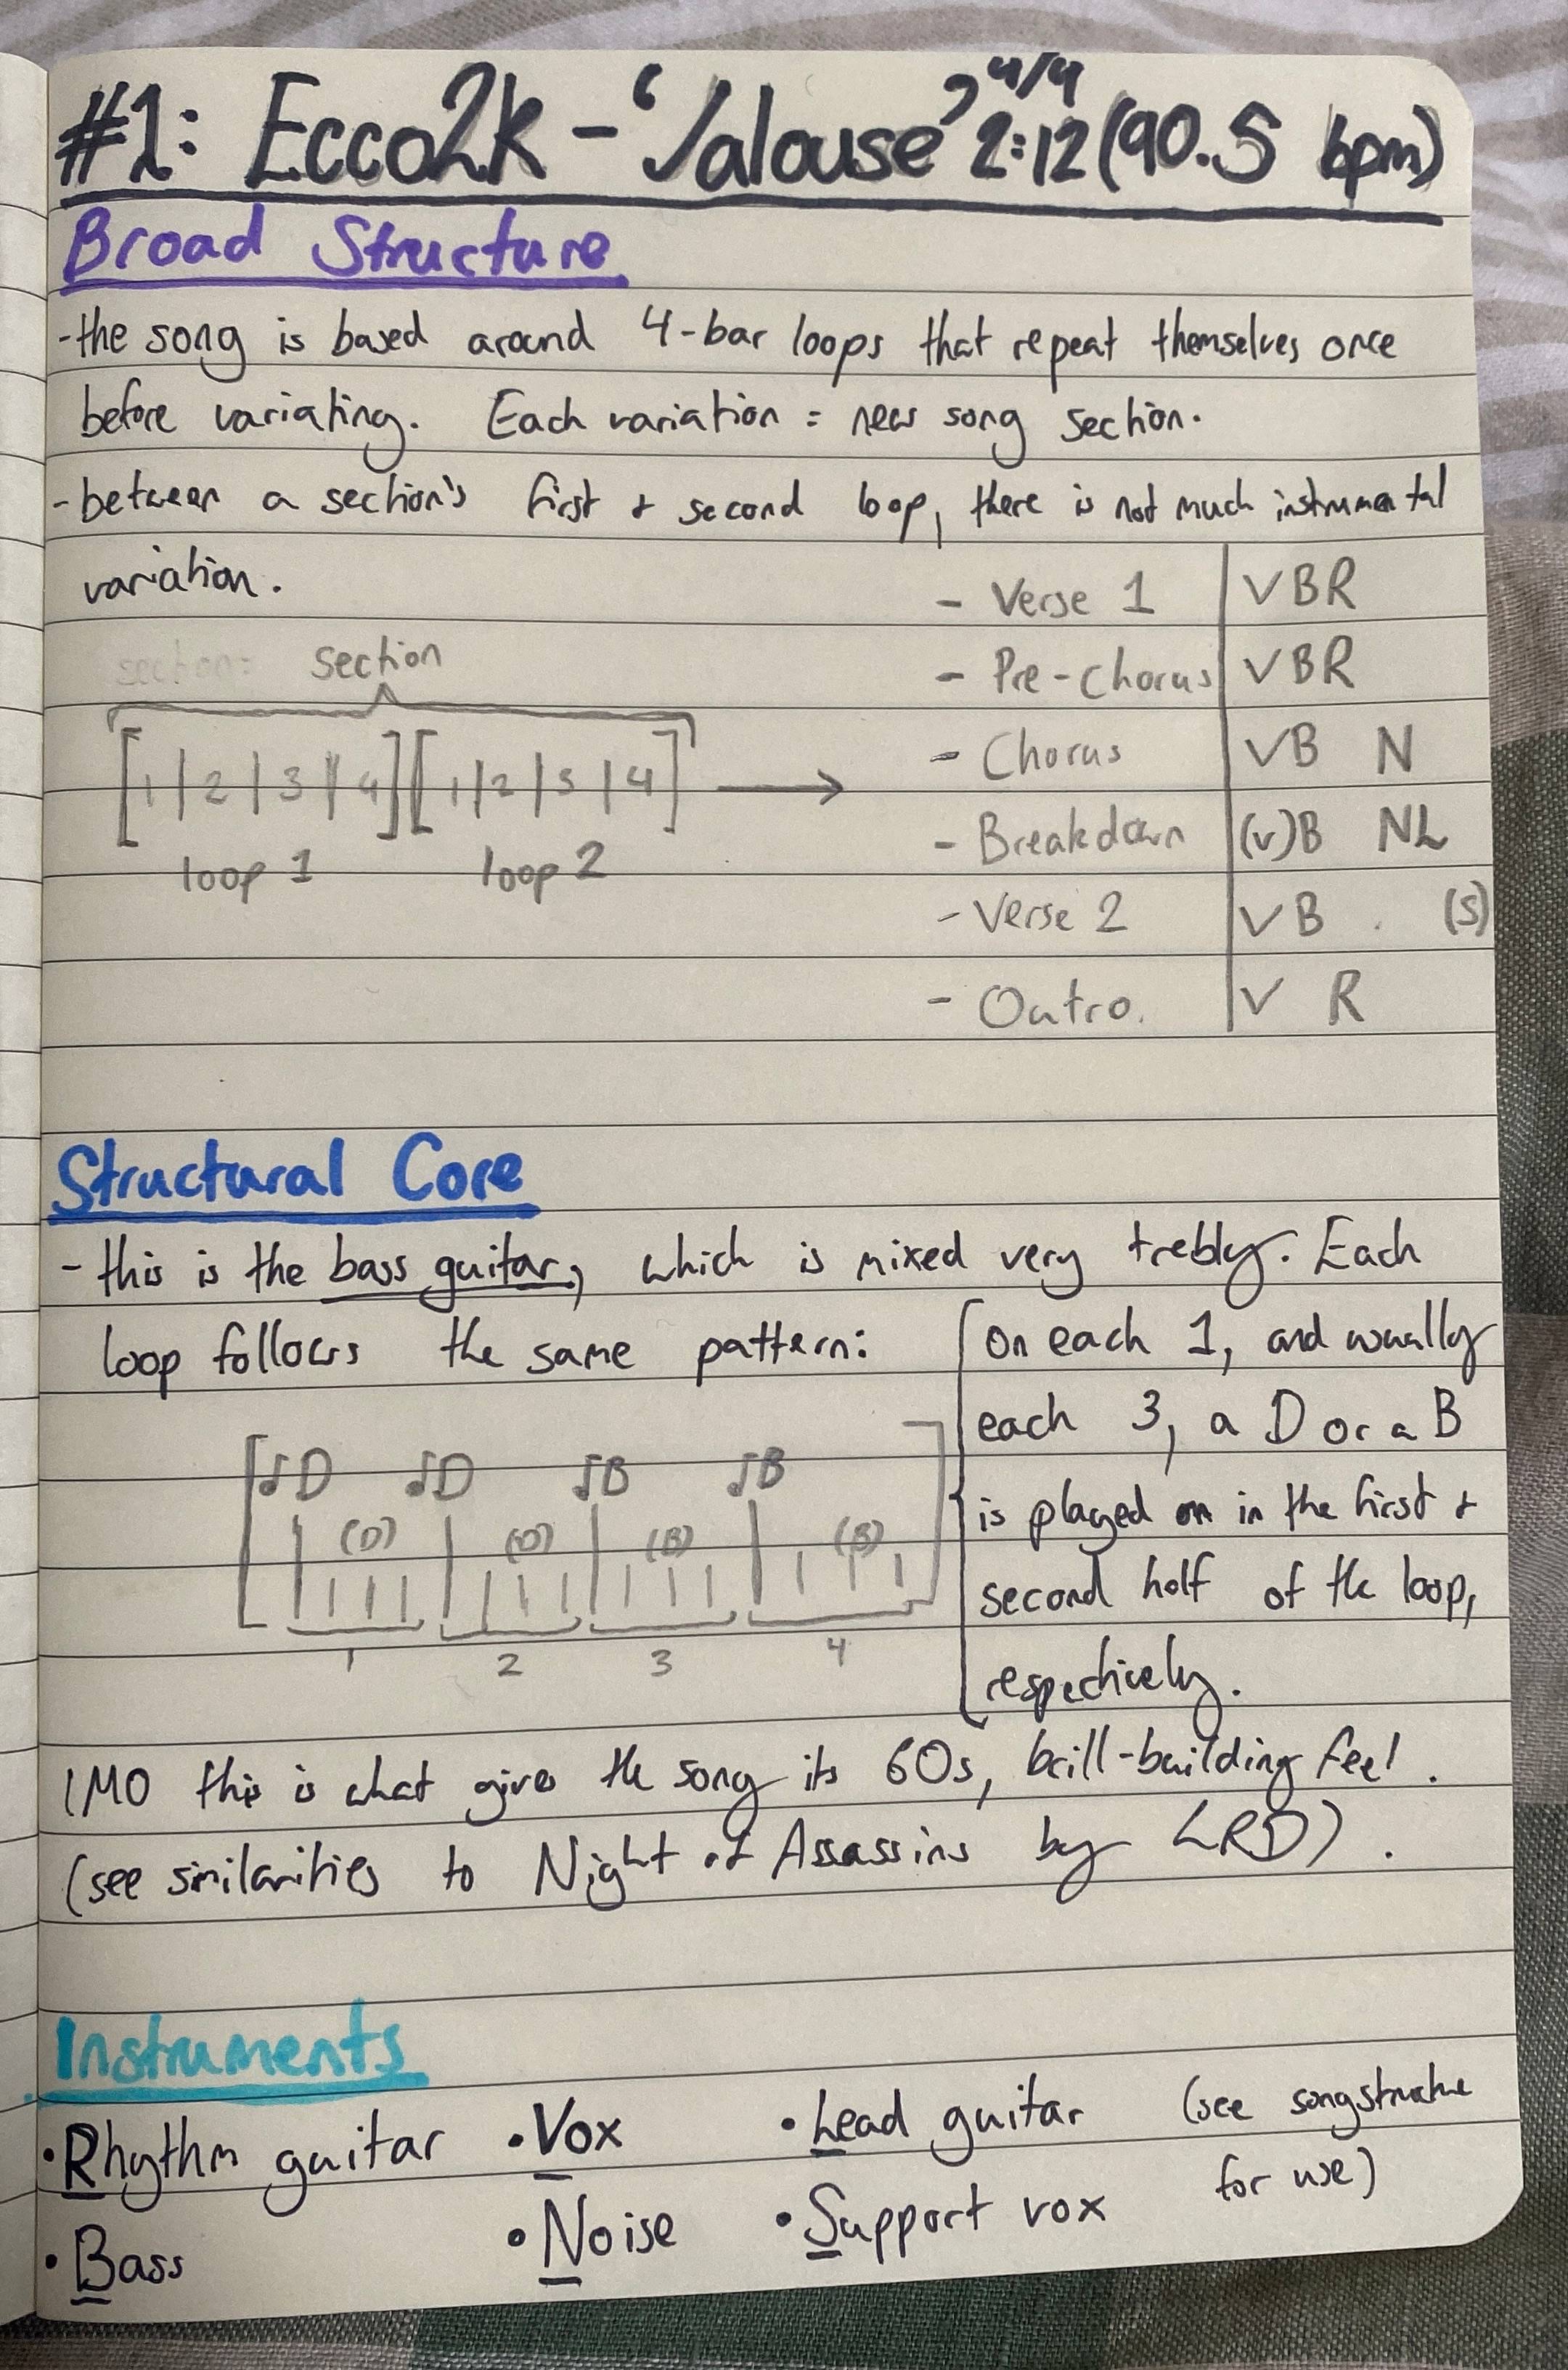 #1: Ecco2k - 'Jalouse' 4/4 2:12 (90.5 bpm)
Broad Structure
- the song is based around 4-bar loops that repeat themselves once
before variating. Each variation = new song section.
- between a section's first + second loop, there is not much instrumental
variation.
section: section
[1|2|3|4][1|2|3|4] →
loop 1 loop 2
- Verse 1 | VBR
- Pre-chorus | VBR
- Chorus | VB N
- Breakdown | (v)B NL
- Verse 2 | VB . (S)
- Outro. | V R
Structural Core
- this is the bass guitar, which is mixed very trebly. Each
loop follows the same pattern:
♪D ♪D ♪B ♪B
(D) (D) (B) (B)
1 2 3 4
on each 1, and usually
each 3, a D or a B
is played on in the first +
second half of the loop,
respectively.
IMO this is what gives the song its 60s, brill-building feel.
(see similarities to Night of Assassins by LRD).
Instruments
• Rhythm guitar • Vox • Lead guitar (see song structure
for use)
• Bass • Noise • Support vox